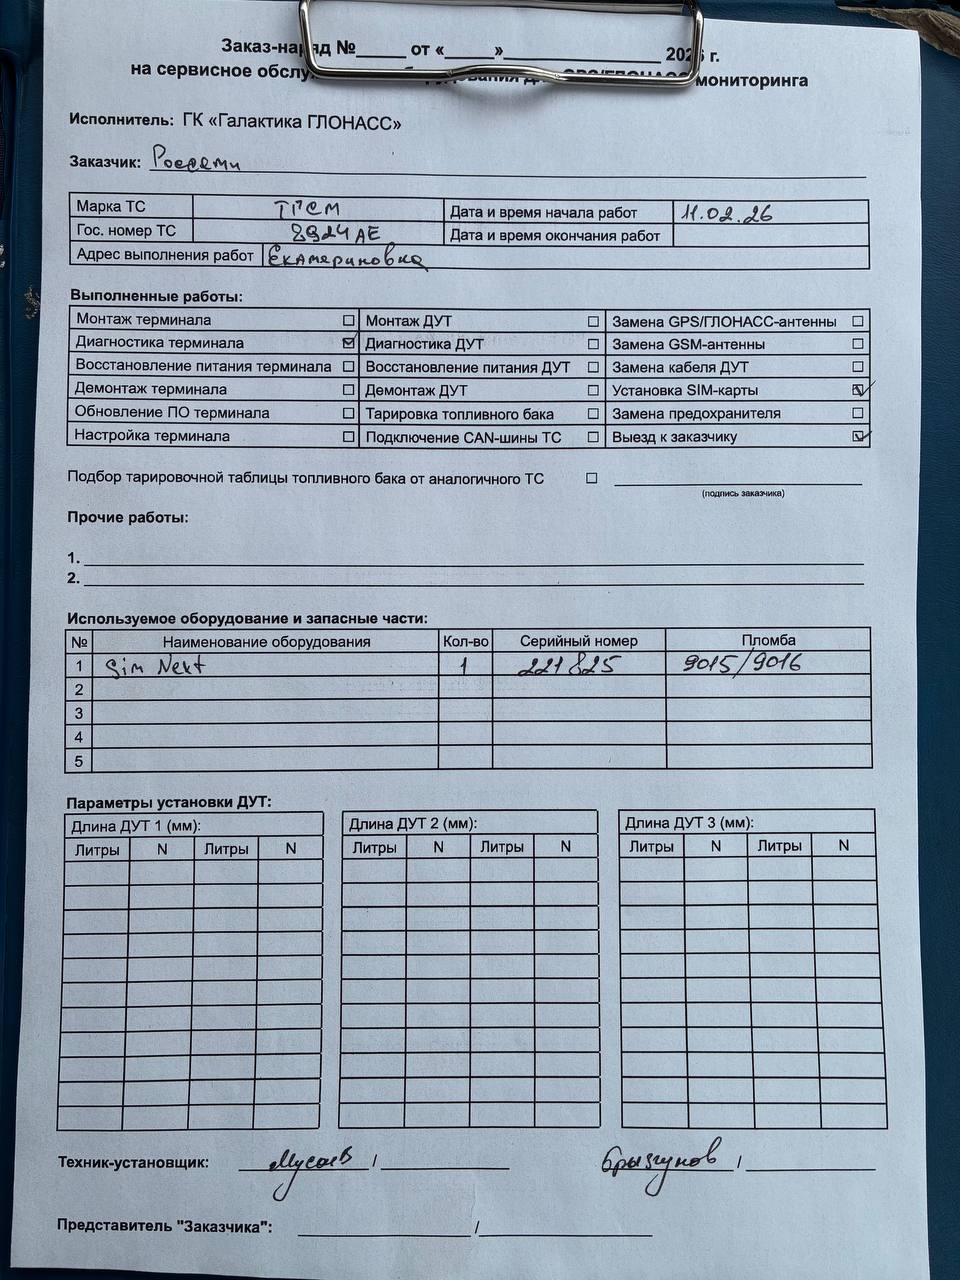 Заказ-наряд №_____ от «_____»____________________ 2026 г.
на сервисное обслу мониторинга
Исполнитель: ГК «Галактика ГЛОНАСС»
Заказчик:
Марка ТС ТПСМ Дата и время начала работ 11.02.26
Гос. номер ТС 8924 АЕ Дата и время окончания работ
Адрес выполнения работ Екатериновка
Выполненные работы:
Монтаж терминала ☐ Монтаж ДУТ ☐ Замена GPS/ГЛОНАСС-антенны ☐
Диагностика терминала ☑ Диагностика ДУТ ☐ Замена GSM-антенны ☐
Восстановление питания терминала ☐ Восстановление питания ДУТ ☐ Замена кабеля ДУТ ☐
Демонтаж терминала ☐ Демонтаж ДУТ ☐ Установка SIM-карты ☑
Обновление ПО терминала ☐ Тарировка топливного бака ☐ Замена предохранителя ☐
Настройка терминала ☐ Подключение CAN-шины ТС ☐ Выезд к заказчику ☑
Подбор тарировочной таблицы топливного бака от аналогичного ТС ☐
(подпись заказчика)
Прочие работы:
1.
2.
Используемое оборудование и запасные части:
№ Наименование оборудования Кол-во Серийный номер Пломба
1 Sim Next 1 221825 9015/9016
2
3
4
5
Параметры установки ДУТ:
Длина ДУТ 1 (мм): Длина ДУТ 2 (мм): Длина ДУТ 3 (мм):
Литры N Литры N Литры N Литры N Литры N Литры N
Техник-установщик: Мусаев / Брызгунов /
Представитель "Заказчика": /